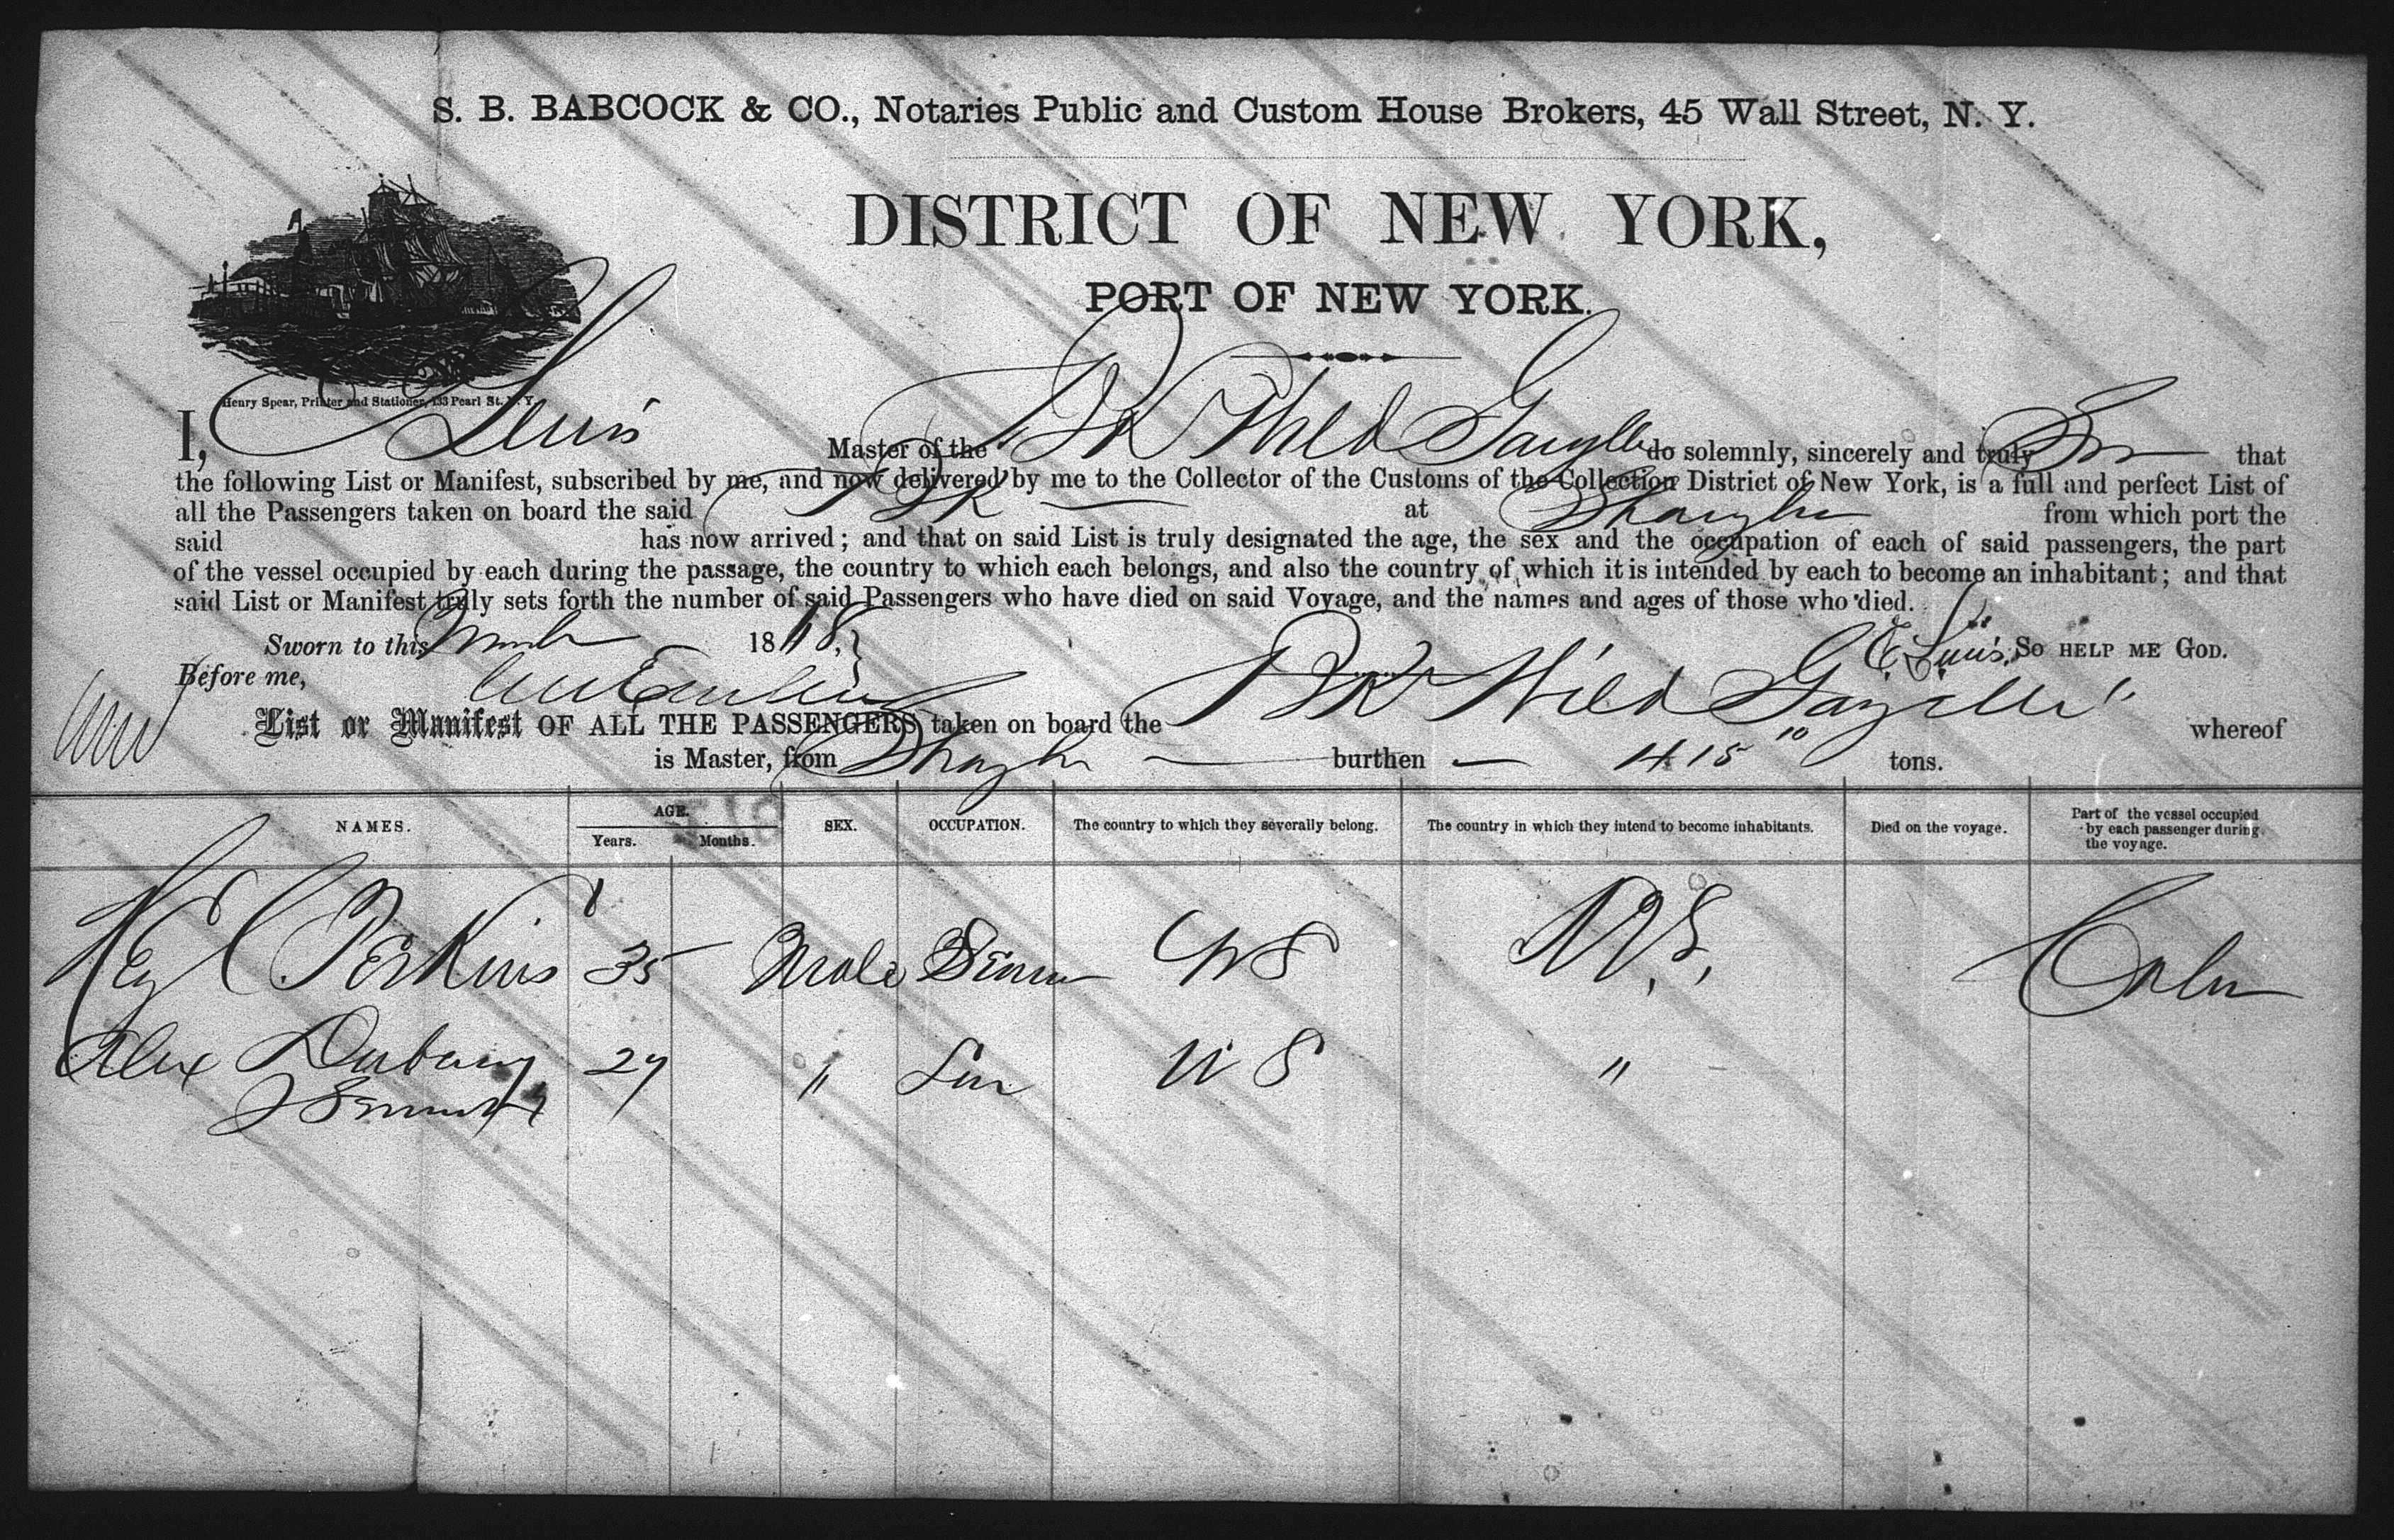 S. B. BABCOCK & CO., Notaries Public and Custom House Brokers, 45 Wall Street, N. Y.
DISTRICT OF NEW YORK,
PORT OF NEW YORK.
Henry Spear, Printer and Stationer, 133 Pearl St. N. Y.
I, C Lewis Master of the Bk Wild Gazelle do solemnly, sincerely and truly that
the following List or Manifest, subscribed by me, and now delivered by me to the Collector of the Customs of the Collection District of New York, is a full and perfect List of
all the Passengers taken on board the said Bk at Shanghai from which port the
said has now arrived; and that on said List is truly designated the age, the sex and the occupation of each of said passengers, the part
of the vessel occupied by each during the passage, the country to which each belongs, and also the country of which it is intended by each to become an inhabitant; and that
said List or Manifest truly sets forth the number of said Passengers who have died on said Voyage, and the names and ages of those who died.
Sworn to this March 18 C Lewis. SO HELP ME GOD.
Before me,
List or Manifest OF ALL THE PASSENGERS taken on board the Bk Wild Gazelle" whereof
is Master, from Shanghai burthen 415 tons.
NAMES. AGE. SEX. OCCUPATION. The country to which they severally belong. The country in which they intend to become inhabitants. Died on the voyage. Part of the vessel occupied by each passenger during the voyage.
Years. Months.
C Perkins 35 Male US U.S.
Alex 27 " US "